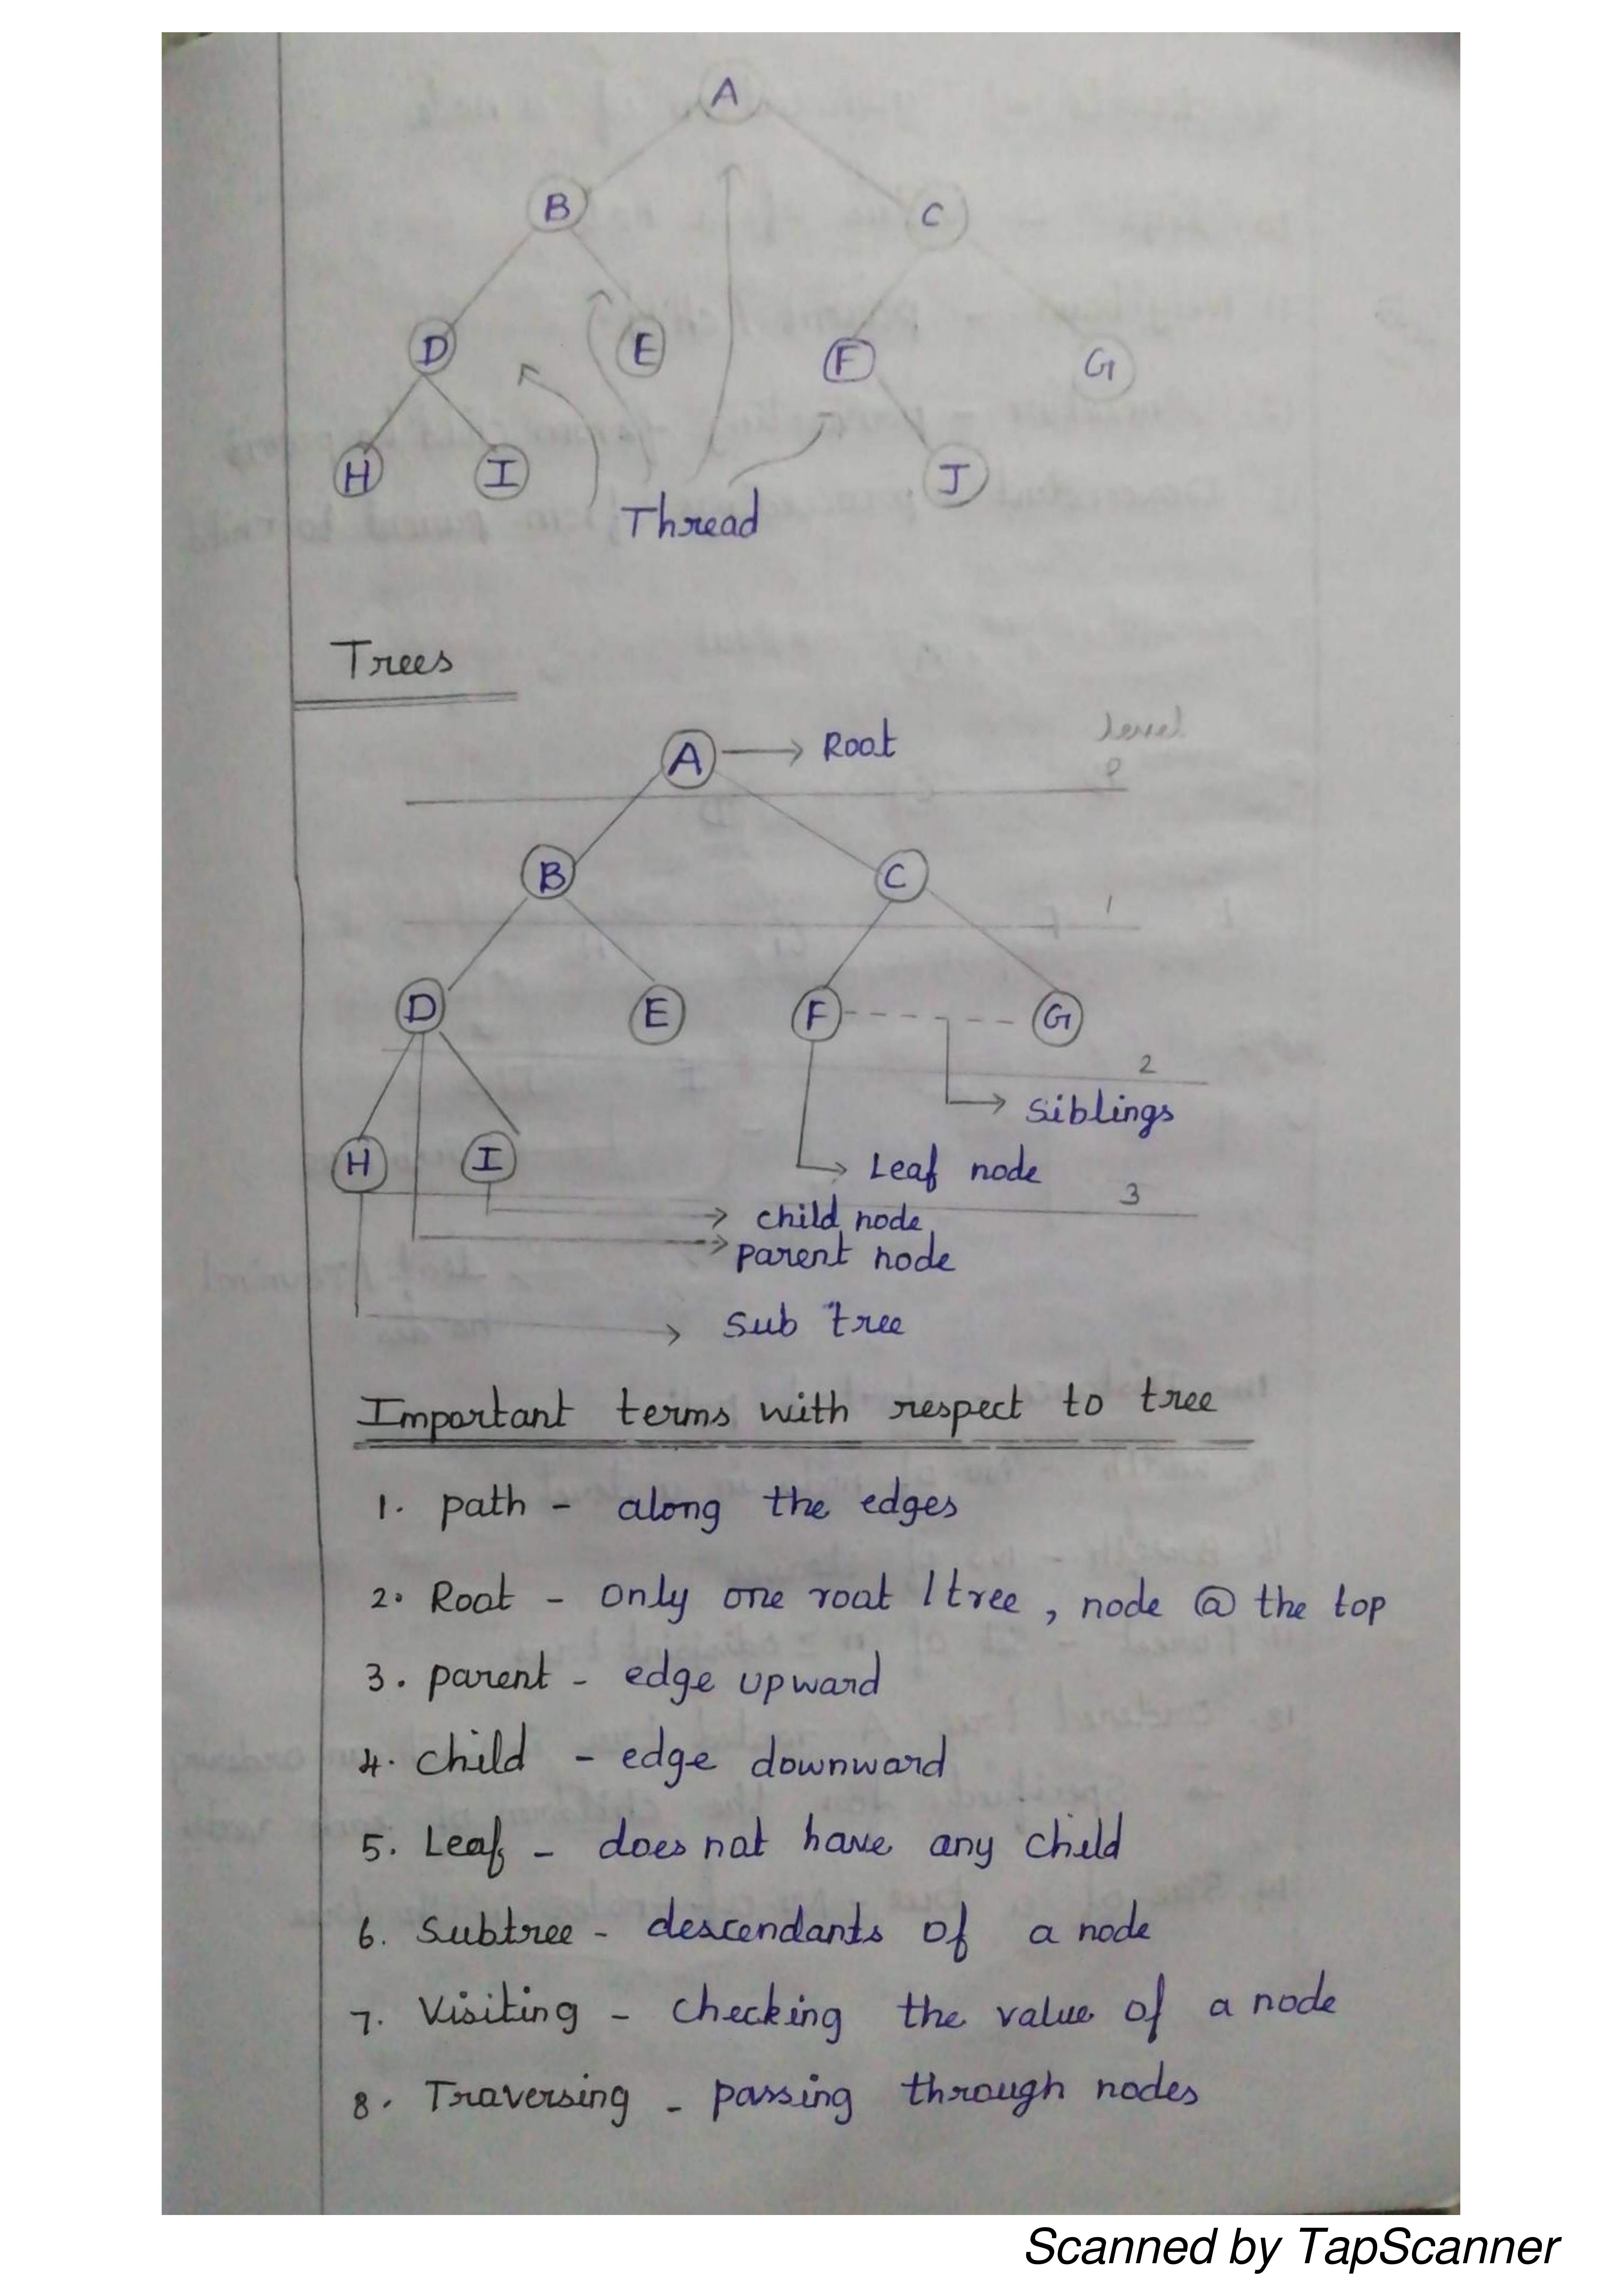 A
B C
D E F G
H I J
Thread
Trees
A Root level
0
B C
1
D E F G
2
Siblings
H I Leaf node
3
child node
parent node
Sub tree
Important terms with respect to tree
1. path - along the edges
2. Root - only one root / tree , node @ the top
3. parent - edge upward
4. child - edge downward
5. Leaf - does not have any child
6. Subtree - descendants of a node
7. Visiting - checking the value of a node
8. Traversing - passing through nodes
Scanned by TapScanner